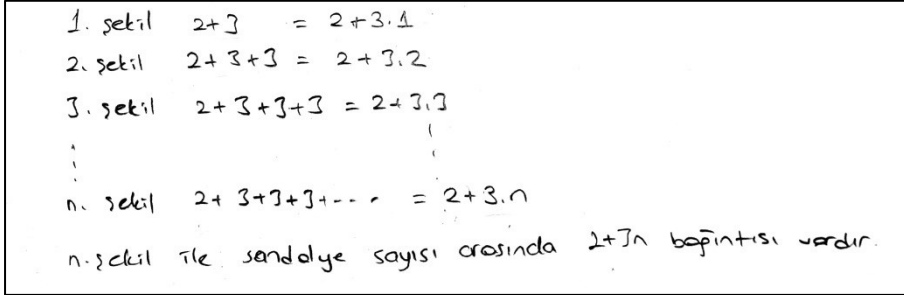 1. şekil 2+3 = 2+3.1
2. şekil 2+3+3 = 2+3.2
3. şekil 2+3+3+3 = 2+3.3
n. şekil 2+3+3+3+--- = 2+3.n
n. şekil ile sandalye sayısı arasında 2+3n bağıntısı vardır.